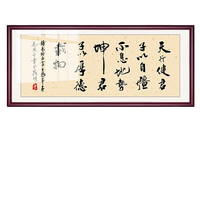 天行健君
子以自强
不息地势
坤君
子以厚德
载物